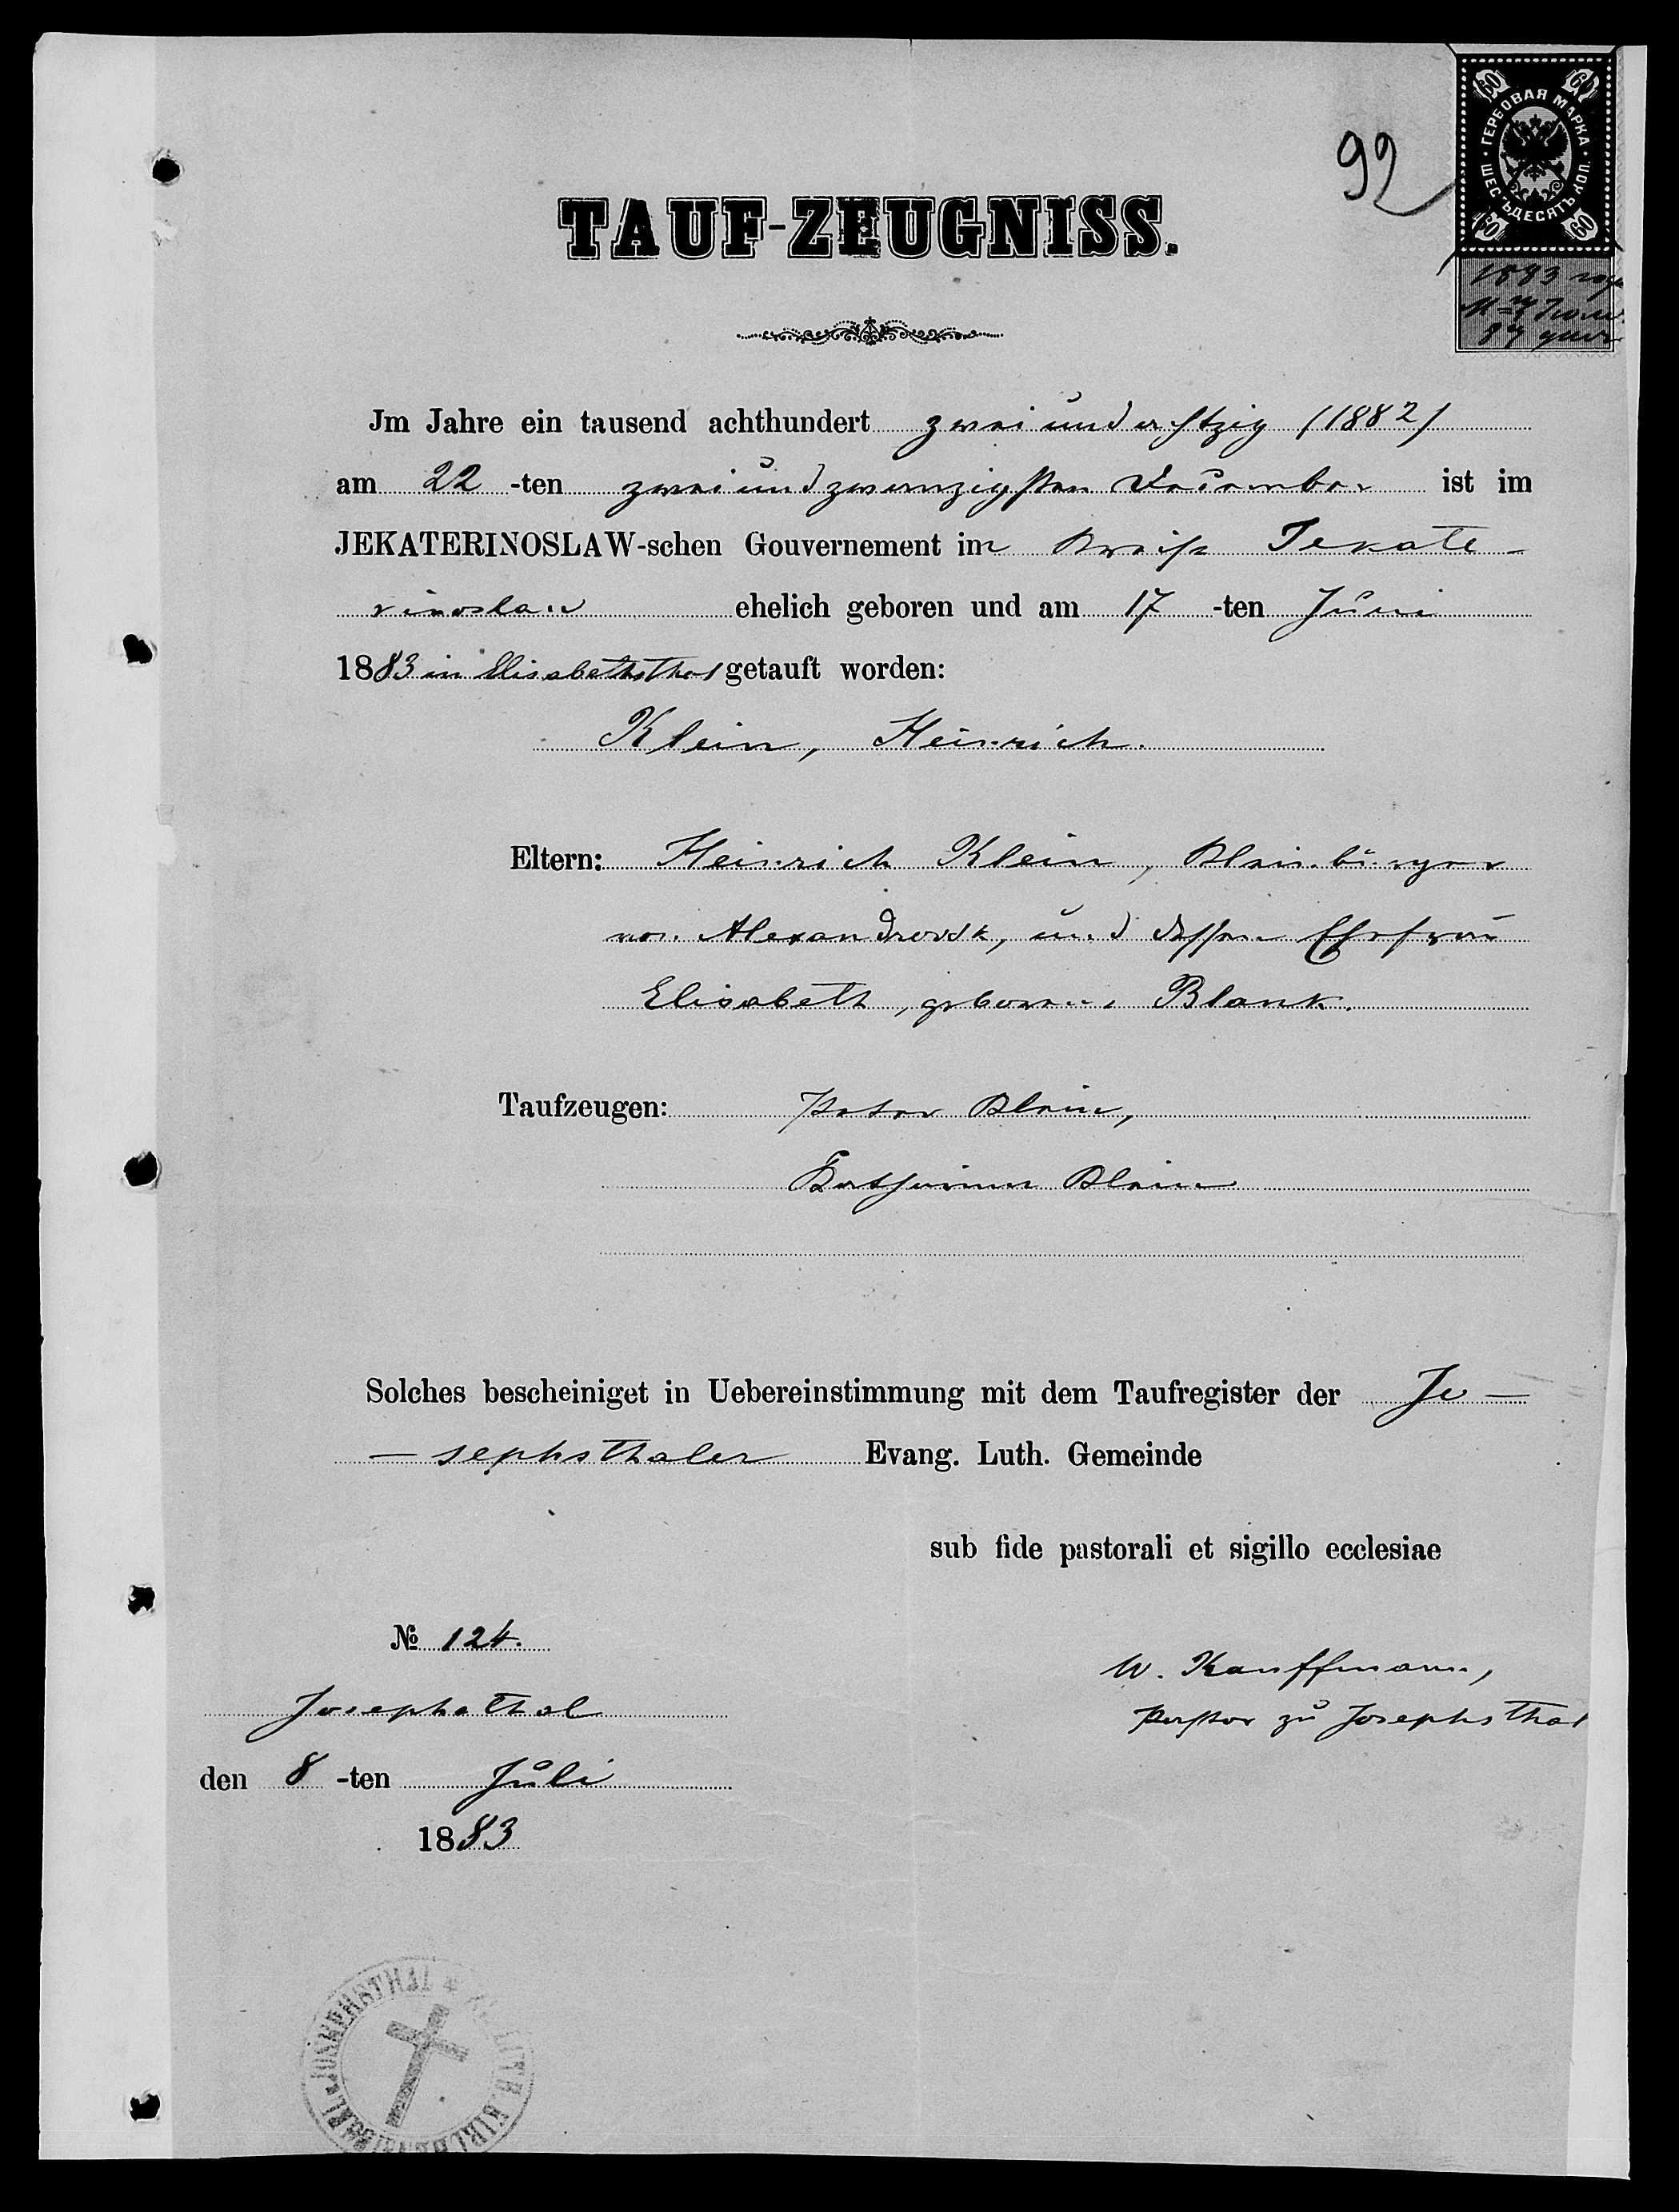 92
60 60
ГЕРБОВАЯ МАРКА
ШЕСТЬДЕСЯТЪ КОП.
60 60
1883 года
Июля
8 дня
TAUF-ZEUGNISS.
Jm Jahre ein tausend achthundert zweiundachtzig (1882)
am 22 -ten zweiundzwanzigsten December ist im
JEKATERINOSLAW-schen Gouvernement im Kreise Jekate-
rinoslaw ehelich geboren und am 17 -ten Juni
1883 in Elisabethsthal getauft worden:
Klein, Heinrich.
Eltern: Heinrich Klein, Kleinbürger
von Alexandrovsk, und dessen Ehefrau
Elisabeth, geborene Blank.
Taufzeugen: Peter Klein,
Katharina Klein
Solches bescheiniget in Uebereinstimmung mit dem Taufregister der Jo-
-sephsthaler Evang. Luth. Gemeinde
sub fide pastorali et sigillo ecclesiae
№ 124.
W. Kauffmann,
Josephsthal
Pastor zu Josephsthal
den 8 -ten Juli
1883
JOSEPHSTHAL